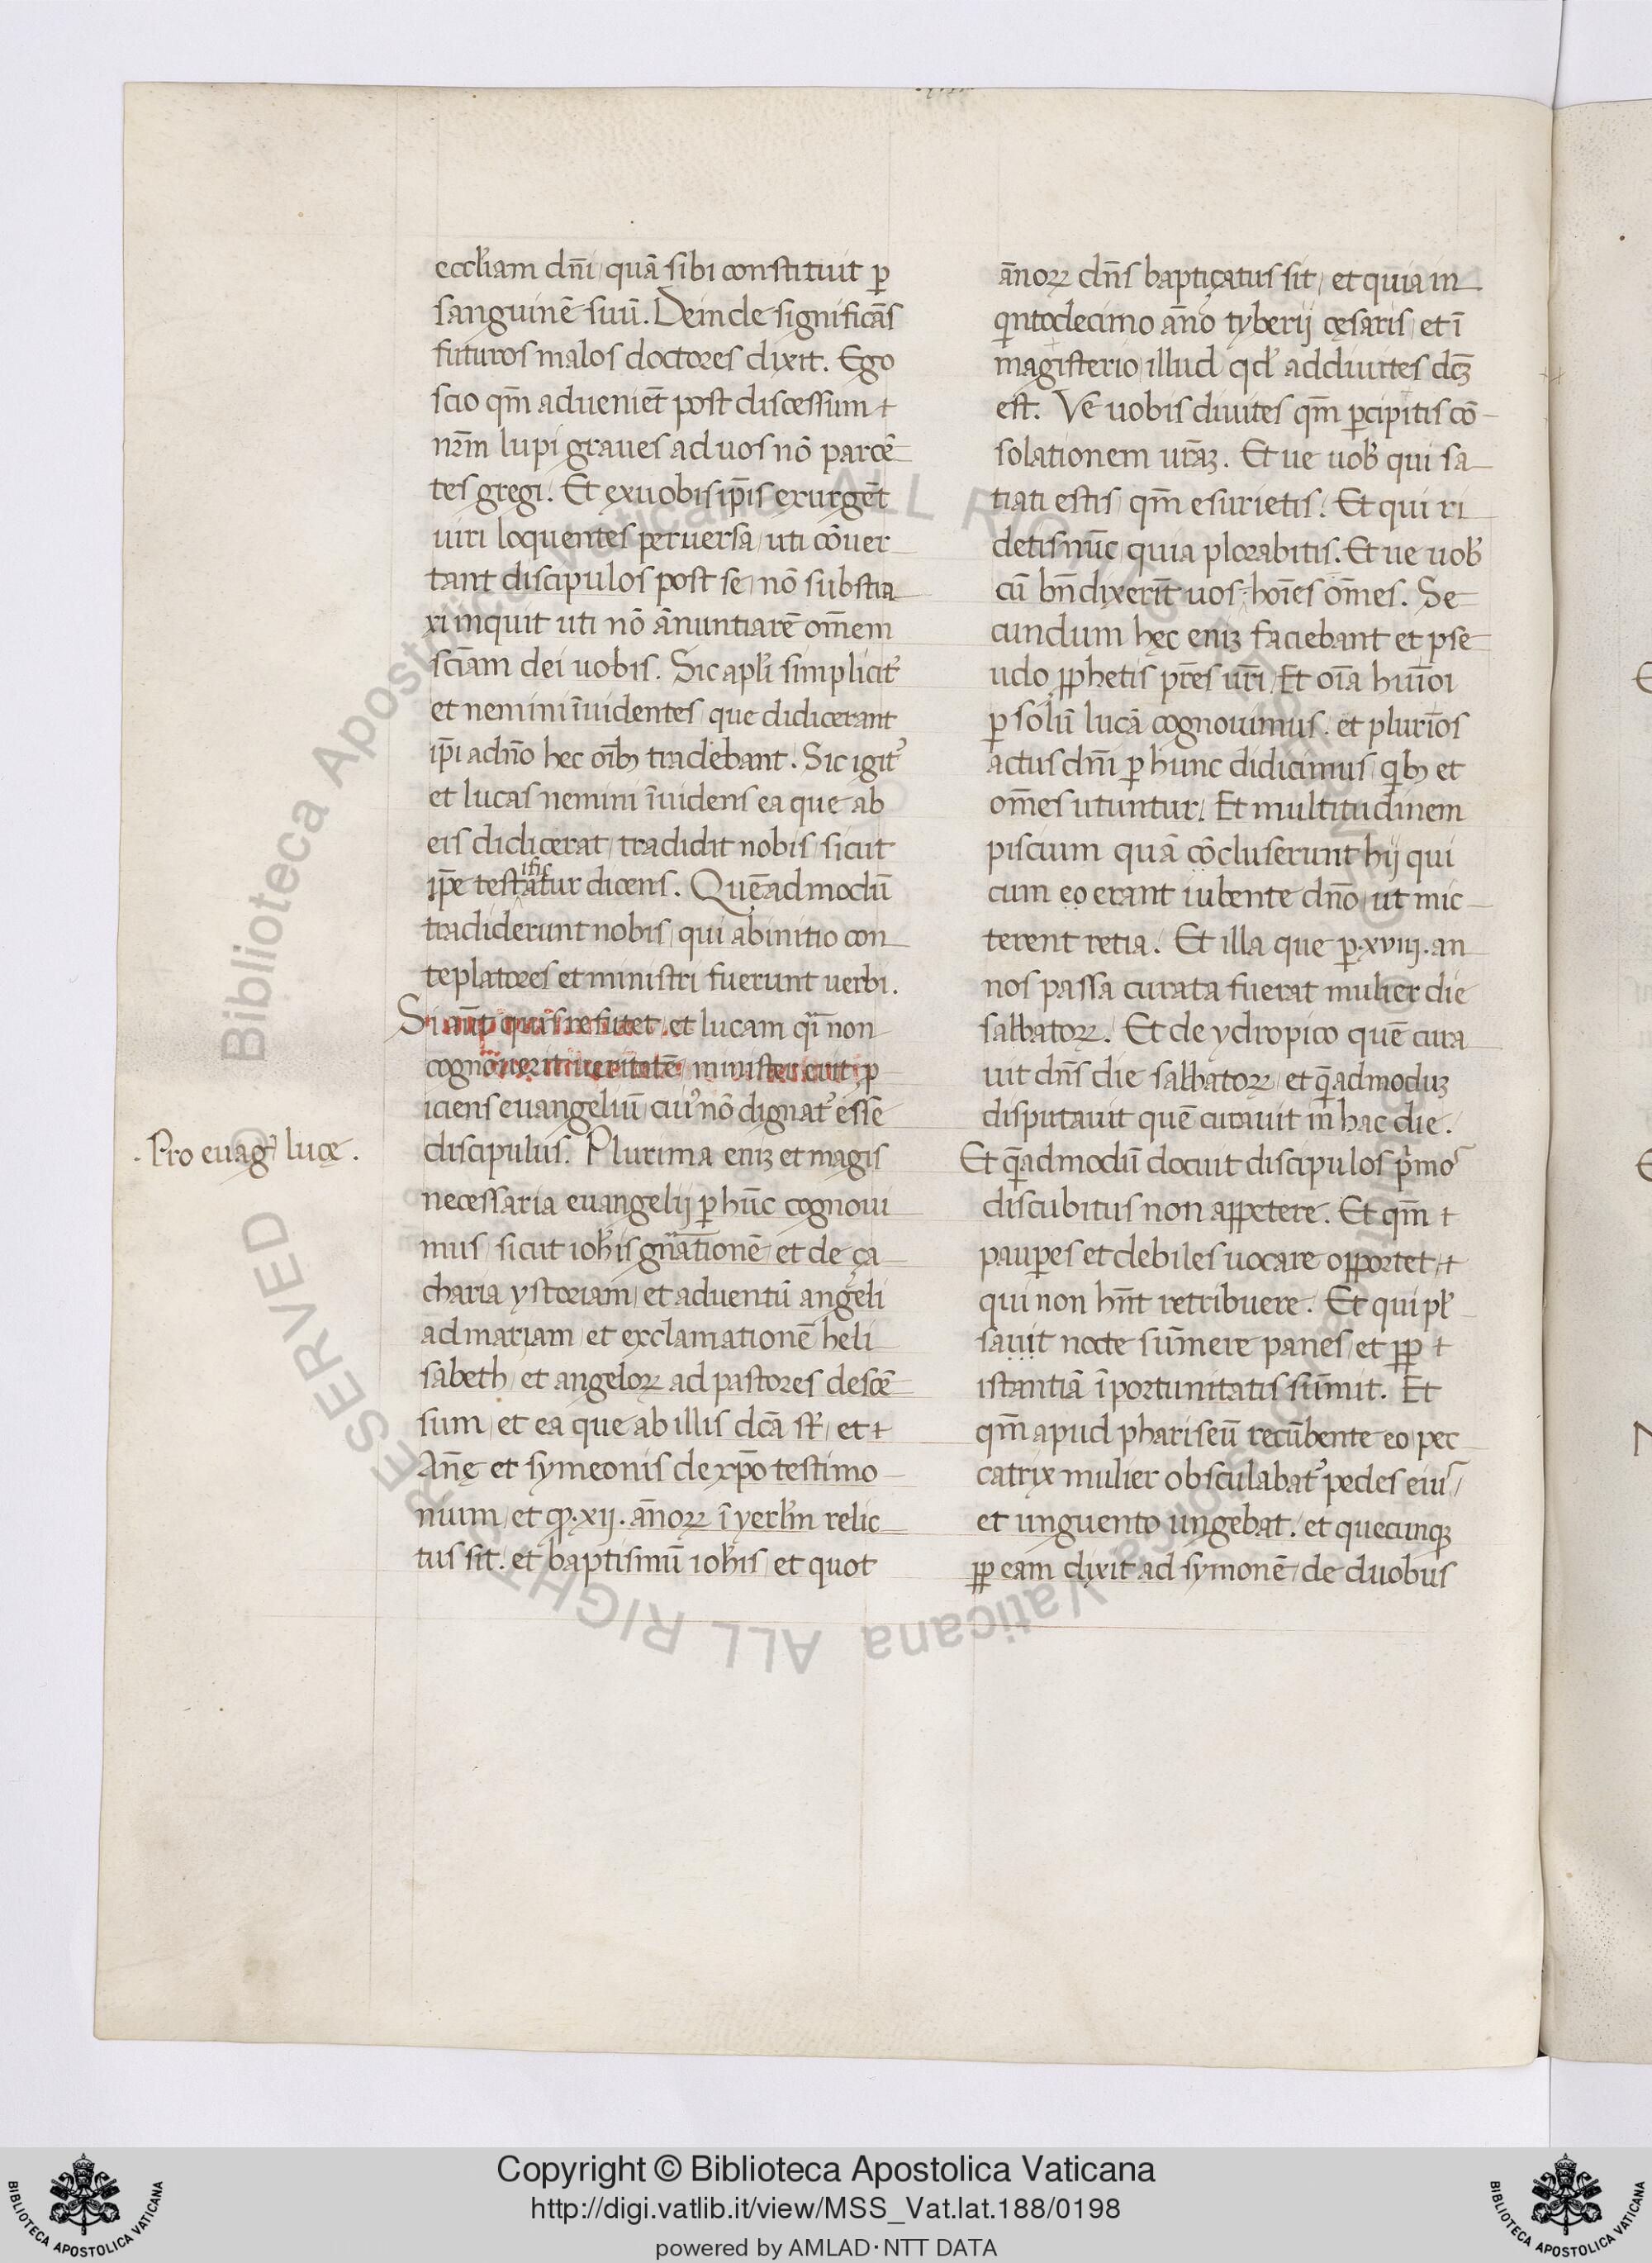 eccl'iam dn̄i quā sibi constituit p̱
sanguinē suū. Deinde significās
futuros malos doctores dixit. Ego
scio qm̄ adueniēt post discessum
nr̄m lupi graues ad uos nō parcē
tes gregi. Et ęx uobis ip̄is exurgēt
uiri loquentes peruersa uti cōuer
tant discipulos post se nō substra
xi inquit uti nō ānuntiarē om̄em
scīam dei uobis. Sic apl'i simplicit'
et nemini īuidentes que didicerant
ip̄i a dn̄o hec oīb; tradebant. Sic igit'
et lucas nemini īuidens ea que ab
eis didicerat tradidit nobis sicut
ip̄e testatur dicens. Quēadmodū
tradiderunt nobis qui ab initio con
teplatores et ministri fuerunt uerbi.
Si aūt quis refutet et lucam q̄i non
cognouerit ueritatē minister erit p̱
iciens euangeliū cui' nō dignat' esse
.Pro euag̱' lucę.
discipulus. Plurima eniʒ et magis
necessaria euangelij p̱ hūc cognoui
mus sicut ioh'is gn̄ationē et de ça
charia ystoriam et aduentū angeli
ad mariam et exclamationē heli
sabeth et angeloꝝ ad pastores descē
sum et ea que ab illis dc̄a st' et
An̄ę et symeonis de xp̄o testimo
nium et qp .xij. ānoꝝ ī yerl'm relic
tus sit. et baptismū ioh'is et quot
ānoꝝ dn̄s baptiçatus sit et quia in
qntodecimo āno tyberij cęsaris et ī
magisterio illud qd' ad diuites dc̄ʒ
est. Ve uobis diuites qm̄ p̱cipitis cō
solationem ur̄aʒ. Et ue uob' qui sa
tiati estis qm̄ esurietis. Et qui ri
detis nūc quia plorabitis. Et ue uob'
cū bn̄dixerīt uos hoīes om̄es. Se
cundum hęc eniʒ faciebant et pse
udo pp̱hetis pr̄es ur̄i. Et oīa hui'oi
p̱ solū lucā cognouimus. et plurīos
actus dn̄i p̱ hunc didicimus qib; et
om̄es utuntur. Et multitudinem
piscium quā cōcluserunt hij qui
cum eo erant iubente dn̄o ut mic
terent retia. Et illa que p̱ .xviij. an
nos passa curata fuerat mulier die
sabbatoꝝ. Et de ydropico quē cura
uit dn̄s die sabbatoꝝ et q̄admoduʒ
disputauit quē curauit in hac die.
Et q̄admodū docuit discipulos p'mos
discubitus non appetere. Et qm̄
paup̱es et debiles uocare opportet
qui non hn̄t retribuere. Et qui pl'
sauit nocte sūmere panes et pp̱
istantiā īportunitatis sūmit. Et
qm̄ apud phariseū recūbente eo pec
catrix mulier obsculabat' pedes eius
et unguento ungebat. et quecunqʒ
pp̱ eam dixit ad symonē de duobus
Copyright © Biblioteca Apostolica Vaticana
http://digi.vatlib.it/view/MSS_Vat.lat.188/0198
powered by AMLAD·NTT DATA